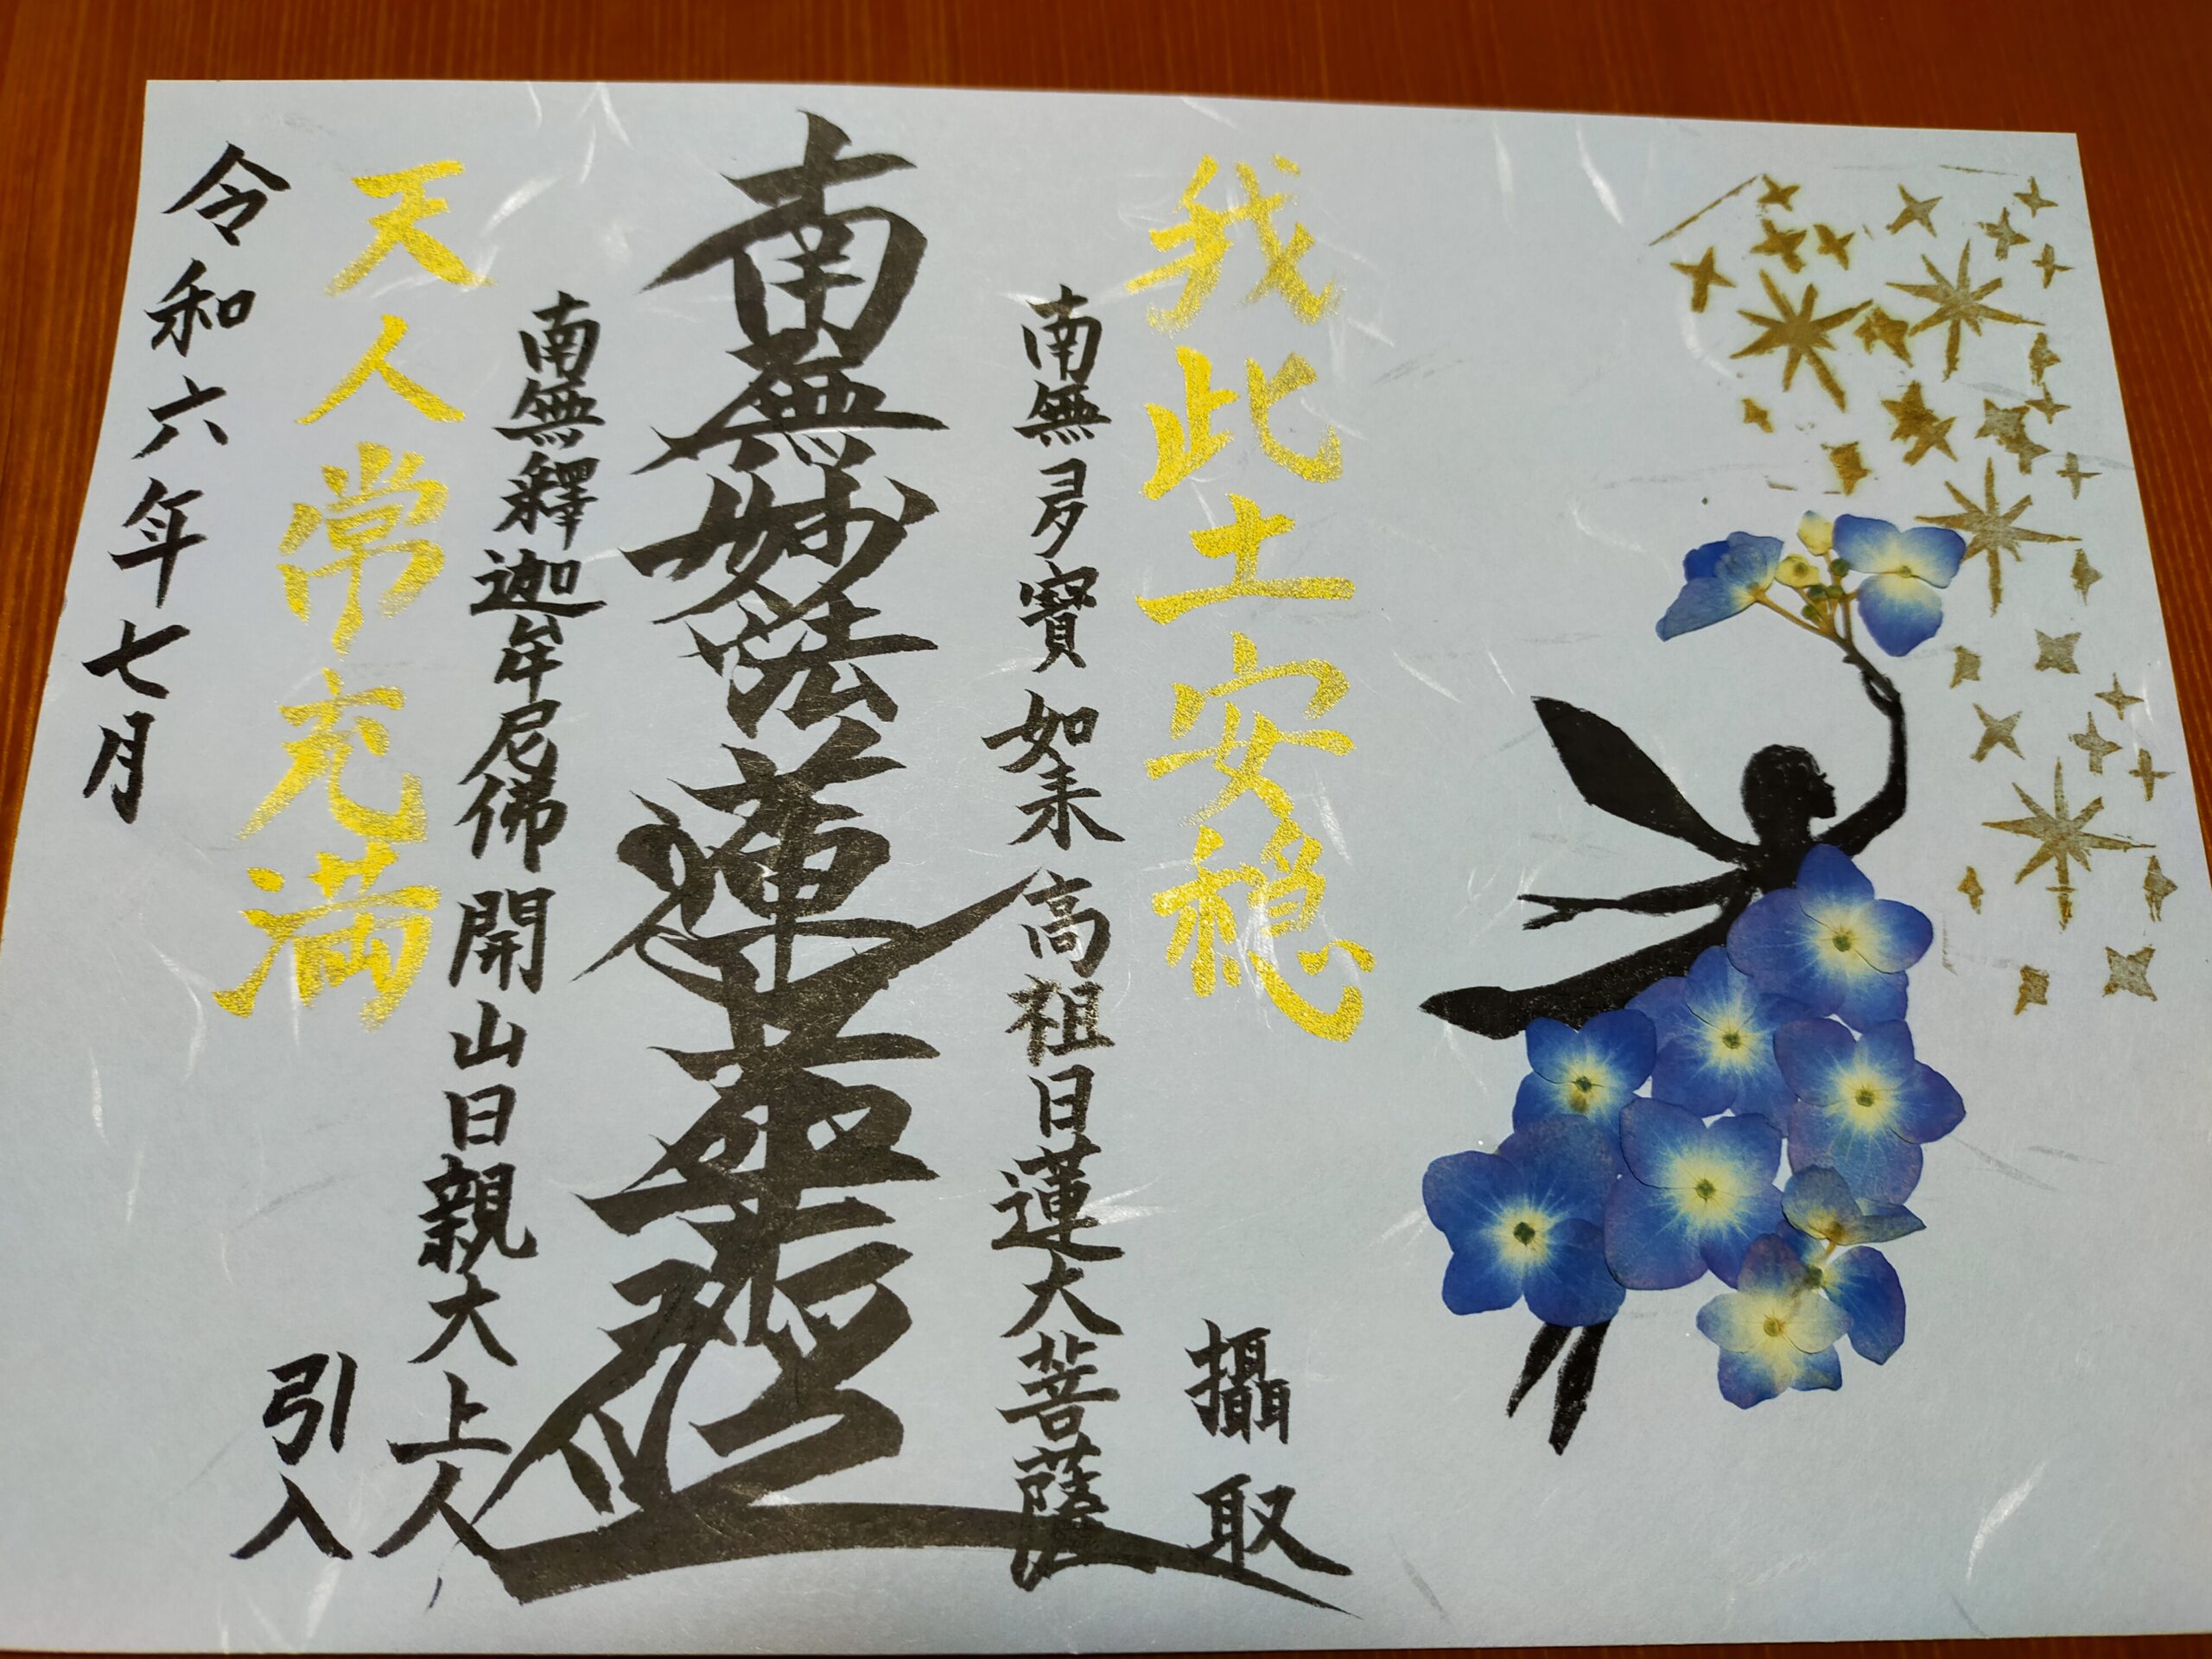 我此土安穏
攝取
南無多寶如来高祖日蓮大菩薩
南無妙法蓮華経
南無釋迦牟尼佛開山日親大上人
天人常充満
引入
令和六年七月